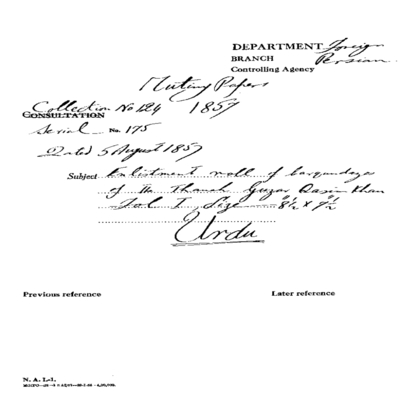 DEPARTMENT Foreign
BRANCH Persian
Controlling Agency
Mutiny Papers
Collection No 124 1857
CONSULTATION
Serial No. 175
Dated 5 August 1857
Subject Enlistment roll of barqundazes
of the Thanah Guzar Qasim Khan
Fol 1 Size 8½ x 7½
Urdu
Previous reference Later reference
N. A. I.-1.